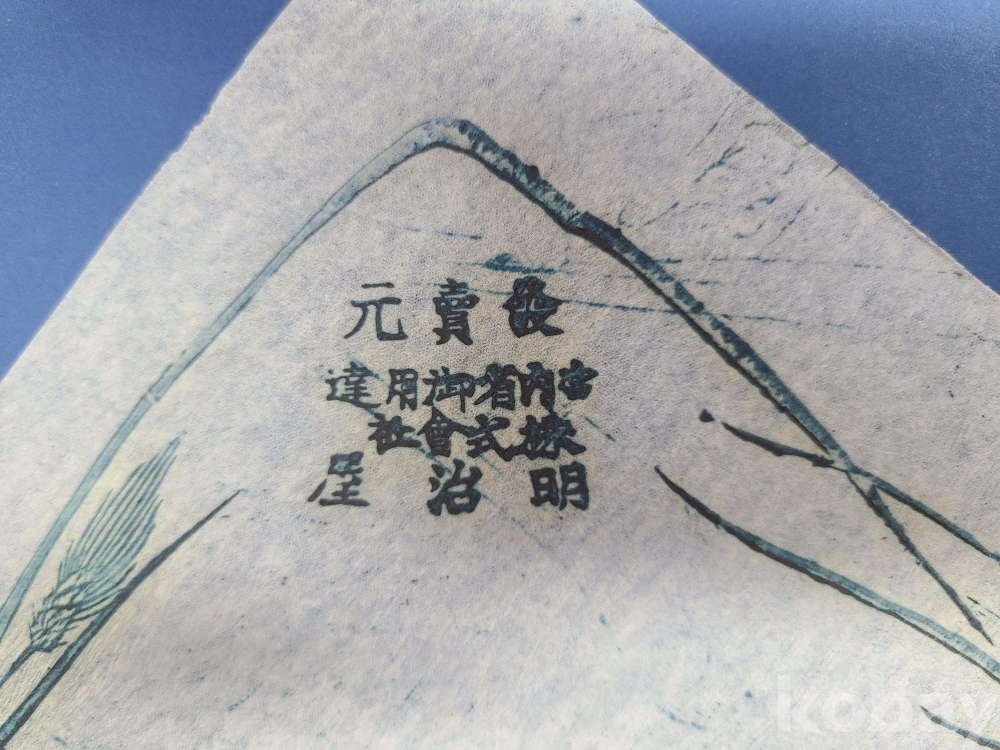 發賣元
宮內省御用達
株式會社
明治屋
kobay